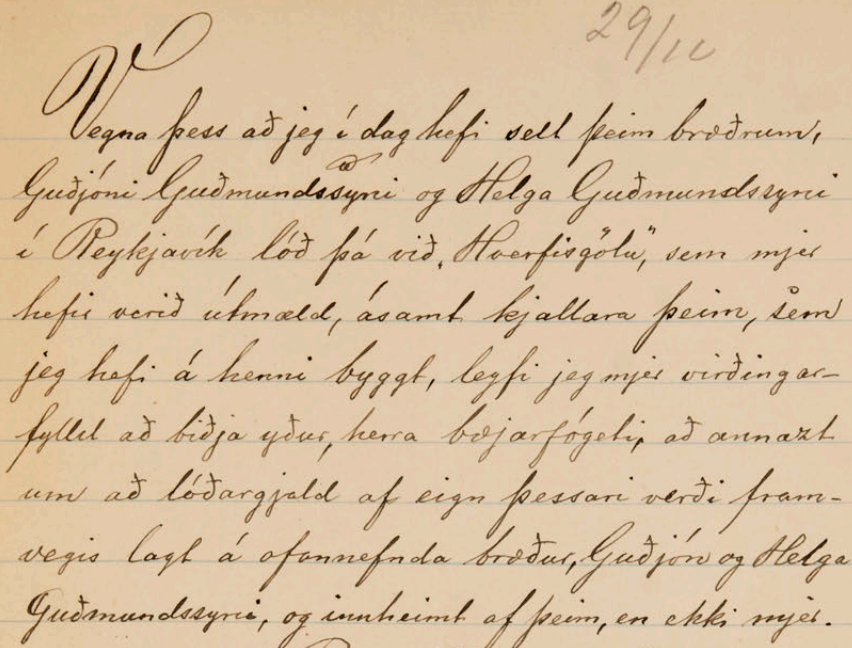 29/11
Vegna þess að jeg í dag hefi selt þeim bræðrum,
Guðjóni Guðmundssyni og Helga Guðmundssyni
í Reykjavík lóð þá við „Hverfisgötu“, sem mjer
hefir verið útmæld, ásamt kjallara þeim, sem
jeg hefi á henni byggt, leyfi jeg mjer virðingar-
fyllst að biðja yður, herra bæjarfógeti, að annazt
um að lóðargjald af eign þessari verði fram-
vegis lagt á ofannefnda bræður, Guðjón og Helga
Guðmundssyni, og innheimt af þeim, en ekki mjer.